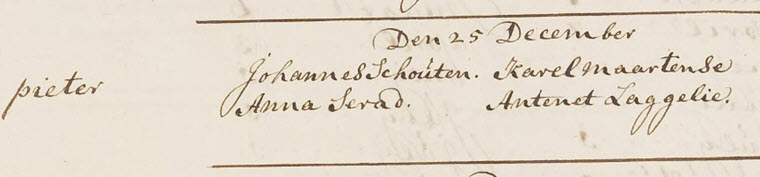 Den 25 December
Johannes Schouten. Karel Maartense
pieter
Anna Serad. Antenet Laggelie.